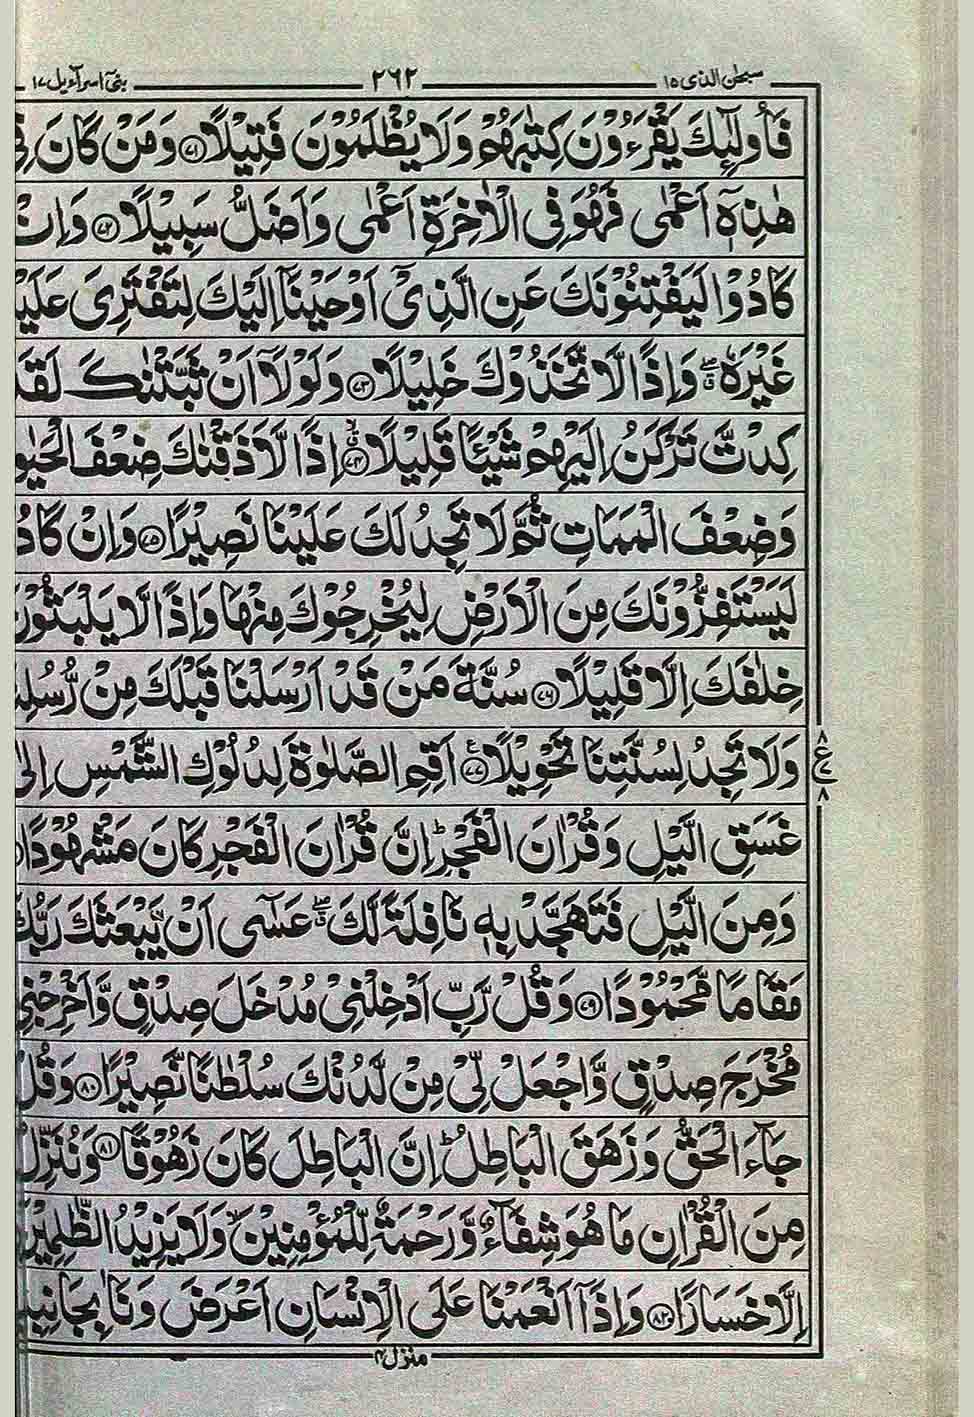 سبحٰن الذی ۱۵
۲۶۲
بنیٓ اسرآءیل ۱۷
فَاُولٰٓئِكَ يَقْرَءُوْنَ كِتٰبَهُمْ وَلَا يُظْلَمُوْنَ فَتِيْلًا ۷۱ وَمَنْ كَانَ فِيْ
هٰذِهٖٓ اَعْمٰى فَهُوَ فِى الْاٰخِرَةِ اَعْمٰى وَاَضَلُّ سَبِيْلًا ۷۲ وَاِنْ
كَادُوْا لَيَفْتِنُوْنَكَ عَنِ الَّذِيْٓ اَوْحَيْنَآ اِلَيْكَ لِتَفْتَرِيَ عَلَيْ
غَيْرَهٗ ۖق وَاِذًا لَّاتَّخَذُوْكَ خَلِيْلًا ۷۳ وَلَوْلَآ اَنْ ثَبَّتْنٰكَ لَقَدْ
كِدْتَّ تَرْكَنُ اِلَيْهِمْ شَيْـًٔا قَلِيْلًا ۷۴ اِذًا لَّاَذَقْنٰكَ ضِعْفَ الْحَيٰو
وَضِعْفَ الْمَمَاتِ ثُمَّ لَا تَجِدُ لَكَ عَلَيْنَا نَصِيْرًا ۷۵ وَاِنْ كَادُ
لَيَسْتَفِزُّوْنَكَ مِنَ الْاَرْضِ لِيُخْرِجُوْكَ مِنْهَا وَاِذًا لَّا يَلْبَثُوْنَ
خِلٰفَكَ اِلَّا قَلِيْلًا ۷۶ سُنَّةَ مَنْ قَدْ اَرْسَلْنَا قَبْلَكَ مِنْ رُّسُلِ
وَلَا تَجِدُ لِسُنَّتِنَا تَحْوِيْلًا ۷۷ ع اَقِمِ الصَّلٰوةَ لِدُلُوْكِ الشَّمْسِ اِلٰى
۸ ع ۸
غَسَقِ الَّيْلِ وَقُرْاٰنَ الْفَجْرِ ؕ اِنَّ قُرْاٰنَ الْفَجْرِ كَانَ مَشْهُوْدًا
وَمِنَ الَّيْلِ فَتَهَجَّدْ بِهٖ نَافِلَةً لَّكَ ۖق عَسٰٓى اَنْ يَّبْعَثَكَ رَبُّكَ
مَقَامًا مَّحْمُوْدًا ۷۹ وَقُلْ رَّبِّ اَدْخِلْنِيْ مُدْخَلَ صِدْقٍ وَّاَخْرِجْنِيْ
مُخْرَجَ صِدْقٍ وَّاجْعَلْ لِّيْ مِنْ لَّدُنْكَ سُلْطٰنًا نَّصِيْرًا ۸۰ وَقُلْ
جَآءَ الْحَقُّ وَزَهَقَ الْبَاطِلُ ؕ اِنَّ الْبَاطِلَ كَانَ زَهُوْقًا ۸۱ وَنُنَزِّلُ
مِنَ الْقُرْاٰنِ مَا هُوَ شِفَآءٌ وَّرَحْمَةٌ لِّلْمُؤْمِنِيْنَ ۙ وَلَا يَزِيْدُ الظّٰلِمِيْنَ
اِلَّا خَسَارًا ۸۲ وَاِذَآ اَنْعَمْنَا عَلَى الْاِنْسَانِ اَعْرَضَ وَنَاٰ بِجَانِبِهٖ
منزل ۴